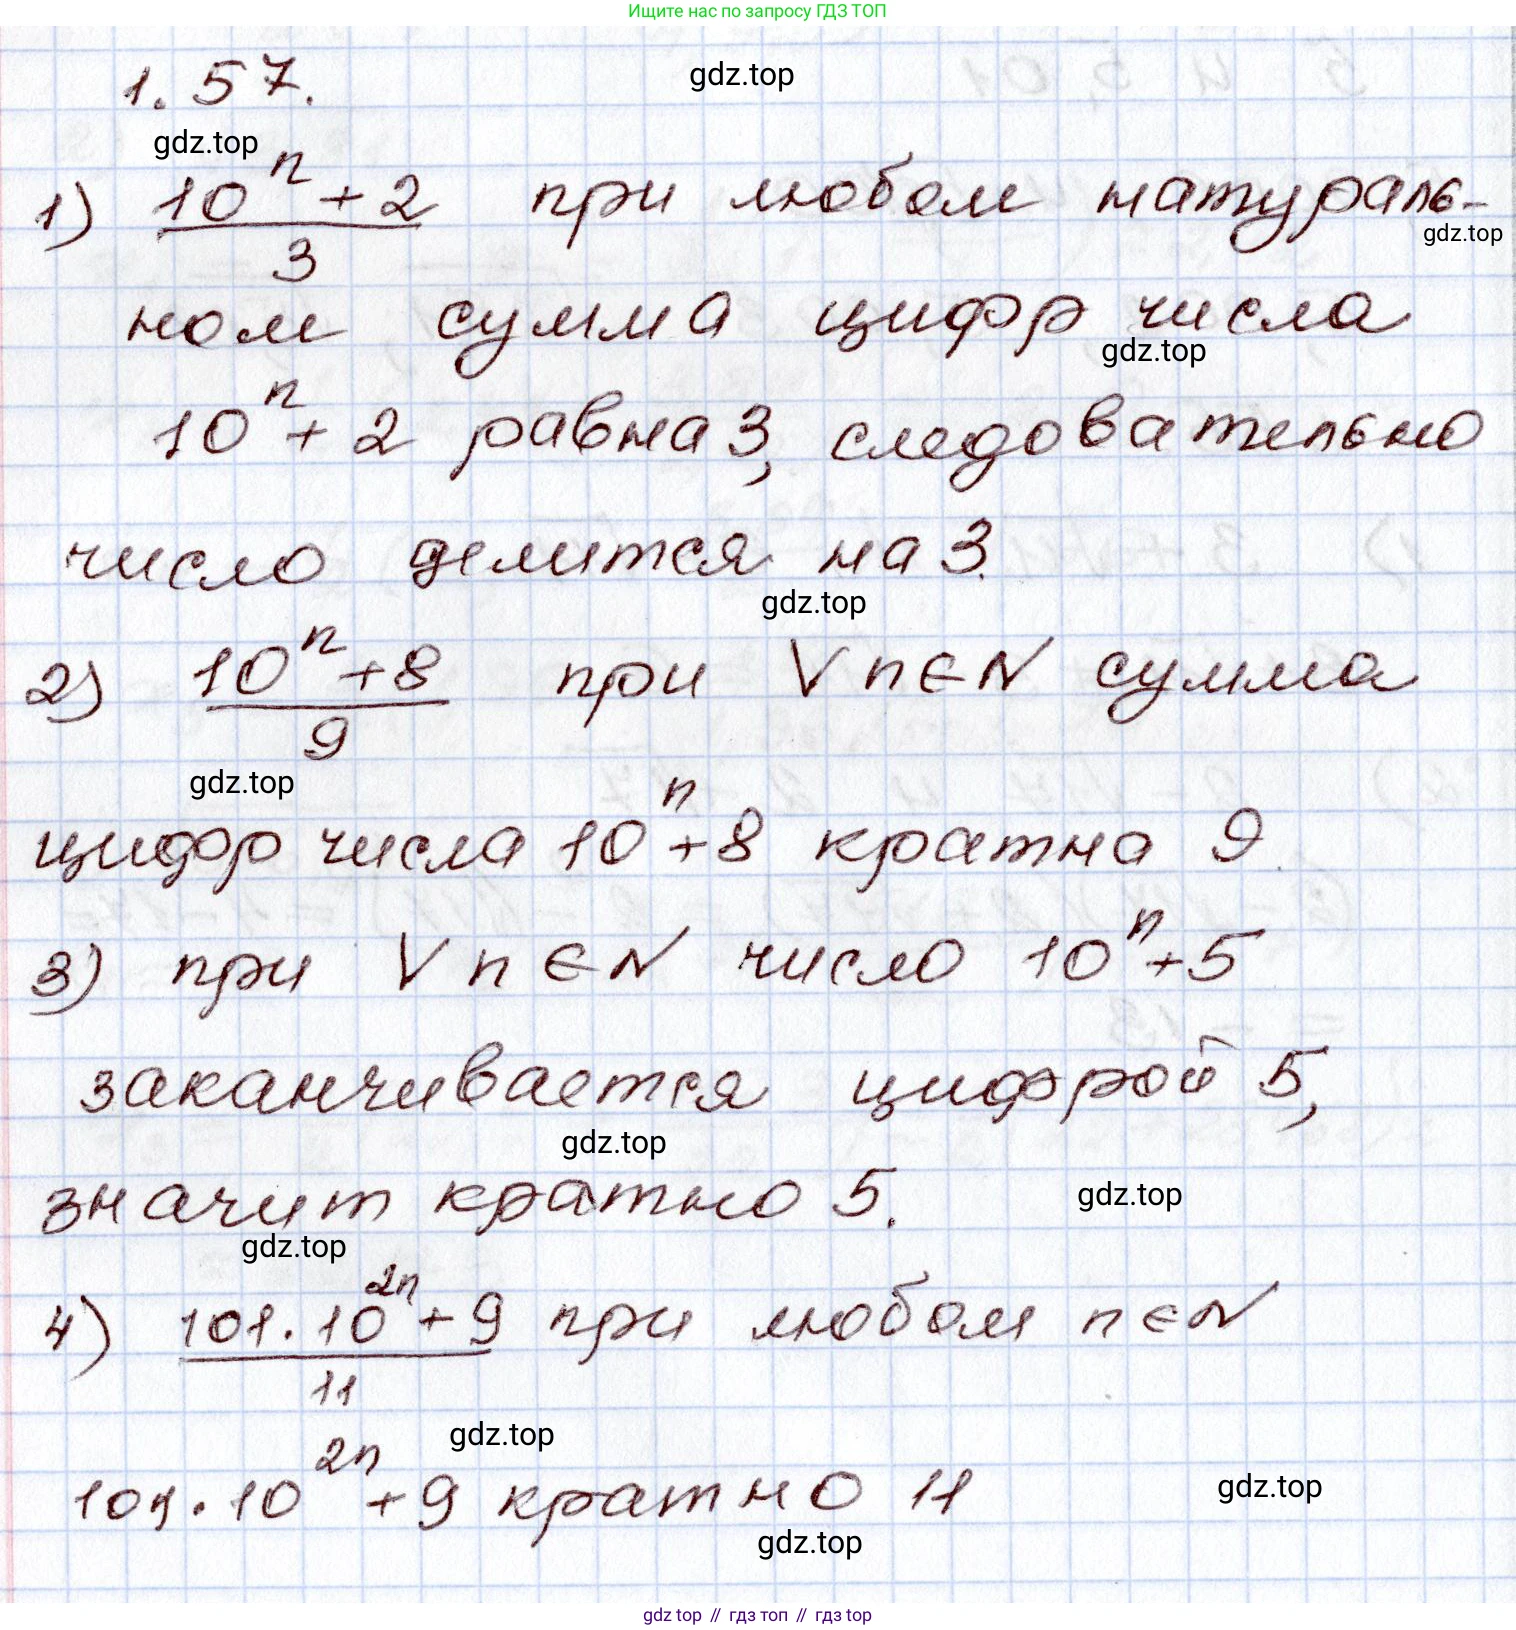 Ищите нас по запросу ГДЗ ТОП
1.57.
gdz.top
gdz.top
1) (10^n + 2)/3 при любом натураль-
gdz.top
ном сумма цифр числа
gdz.top
10^n + 2 равна 3, следовательно
число делится на 3.
gdz.top
2) (10^n + 8)/9 при ∀ n ∈ N сумма
gdz.top
цифр числа 10^n + 8 кратна 9.
3) при ∀ n ∈ N число 10^n + 5
заканчивается цифрой 5,
gdz.top
значит кратно 5.
gdz.top
gdz.top
4) (101 · 10^2n + 9)/11 при любом n ∈ N
gdz.top
101 · 10^2n + 9 кратно 11
gdz.top
gdz.top
gdz top // гдз топ // гдз top